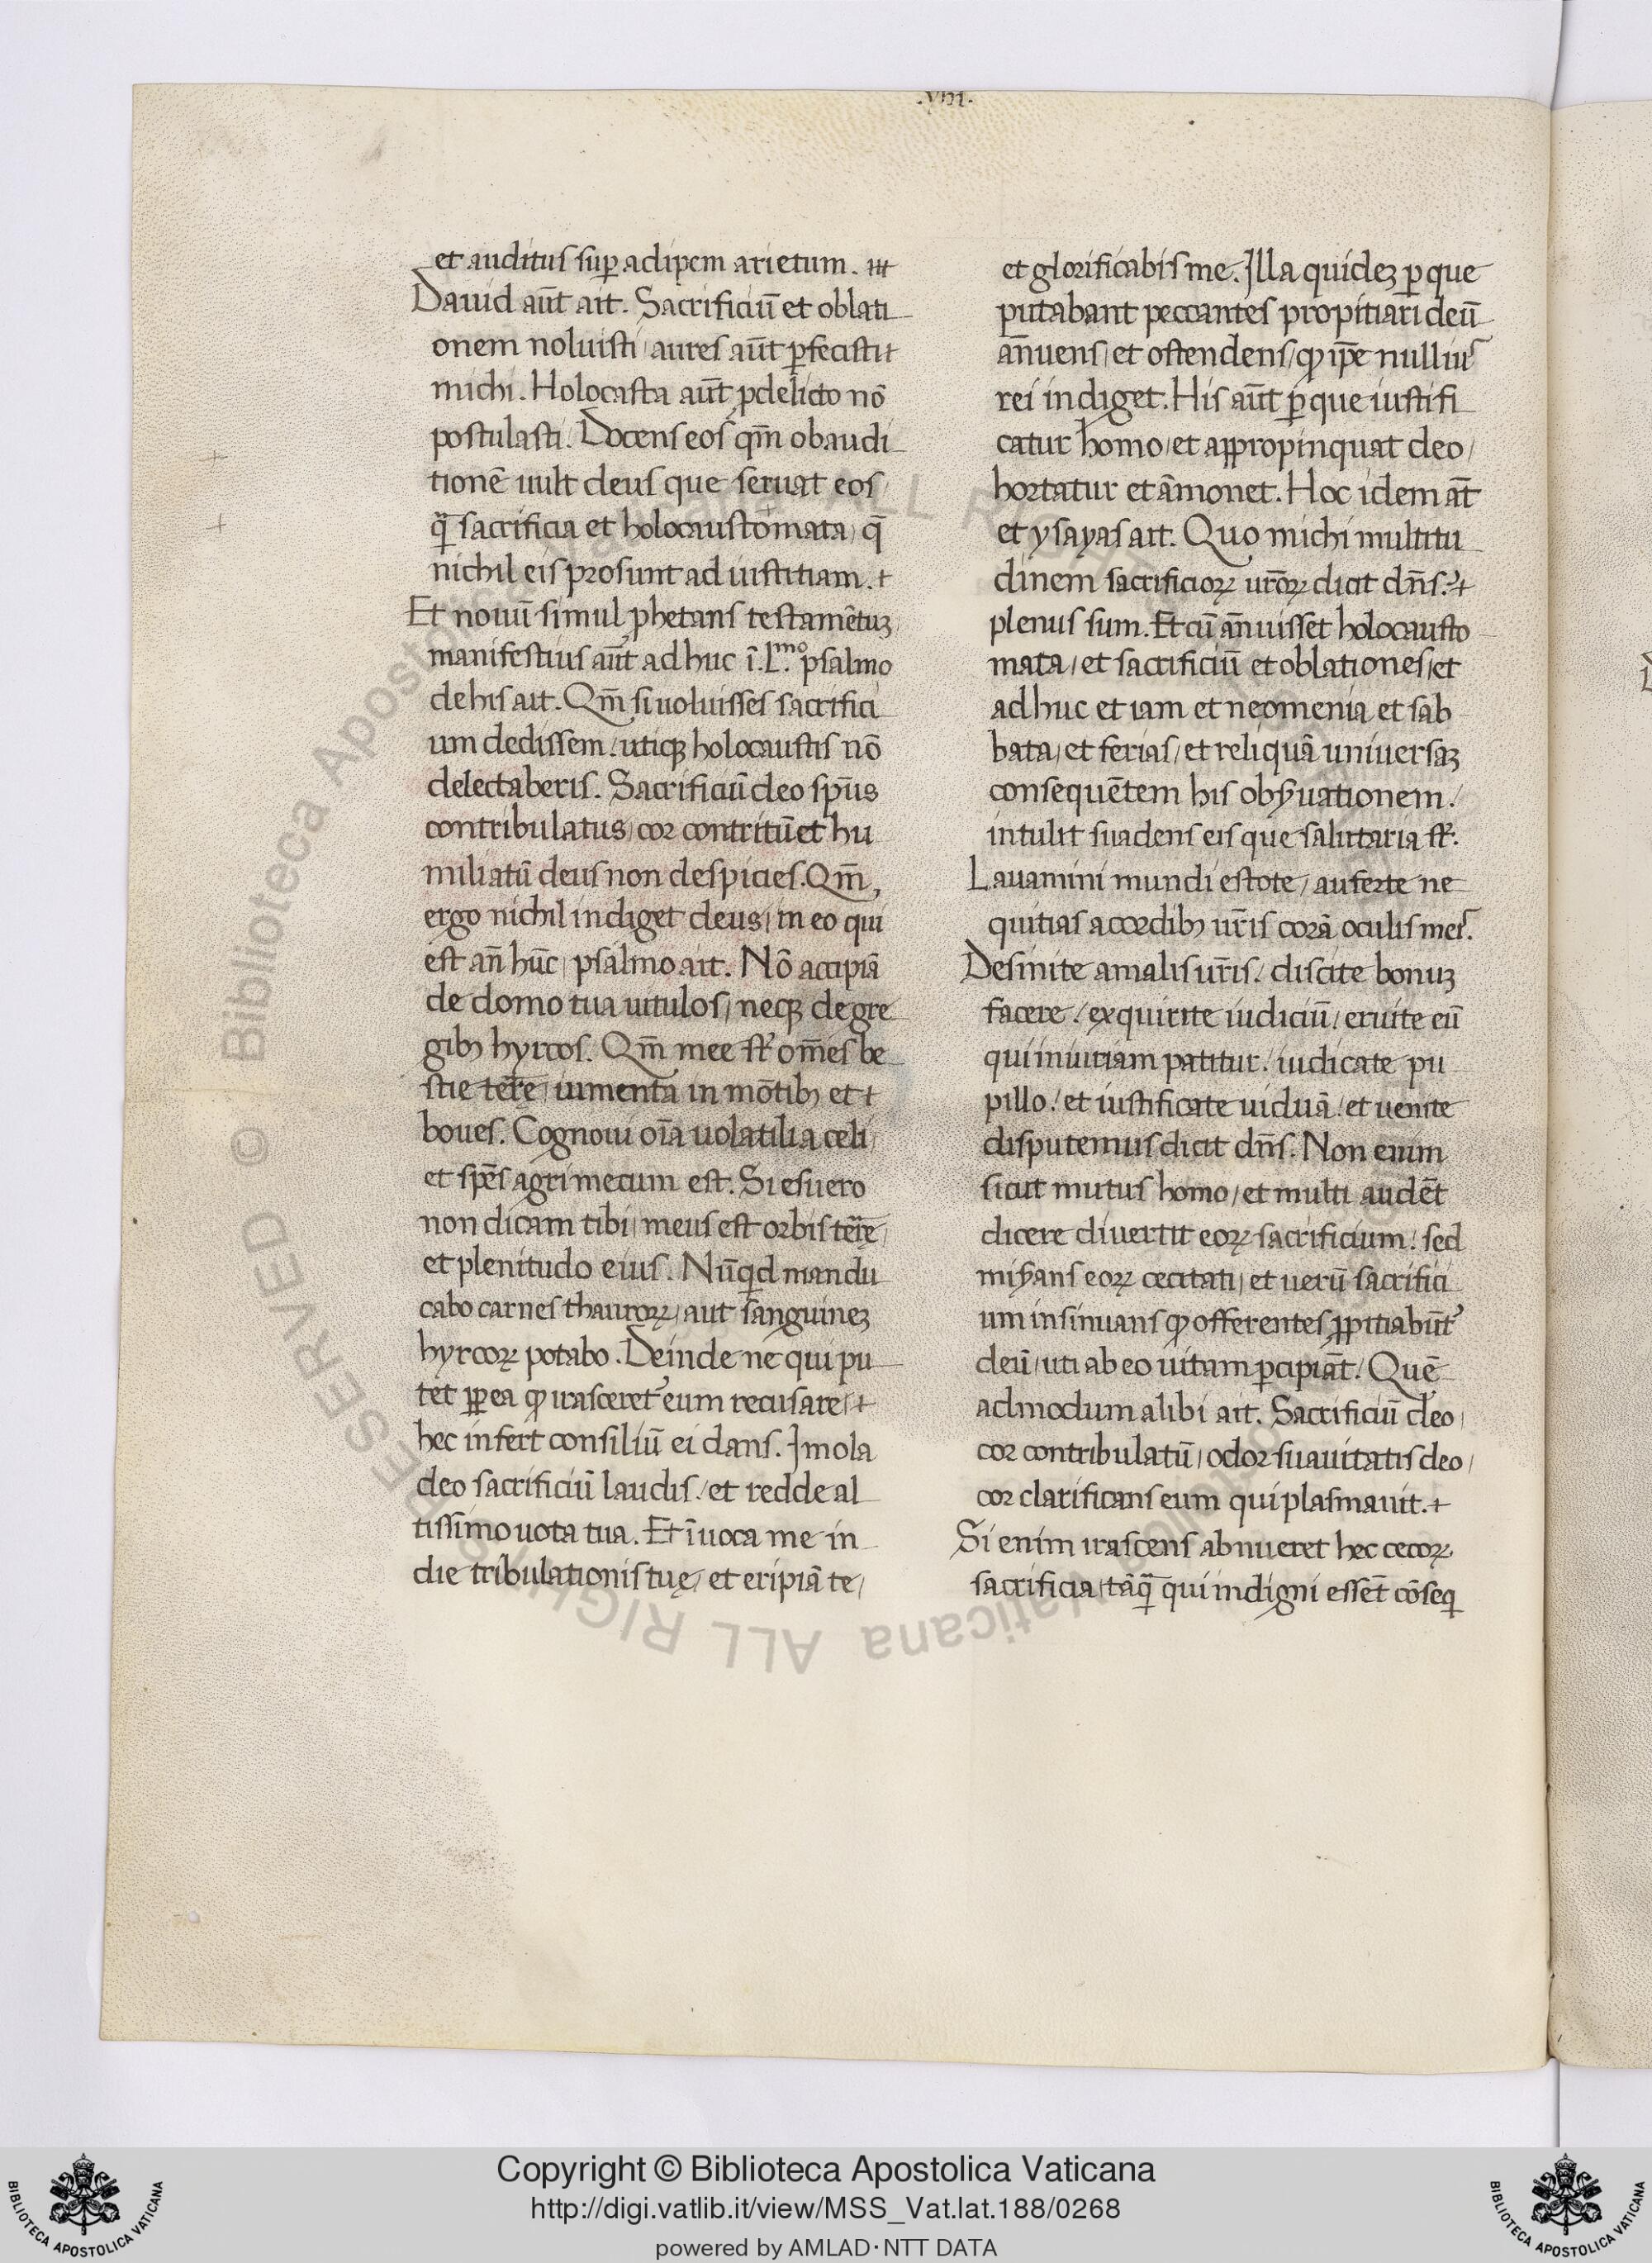 .viii.
et auditus suꝑ adipem arietum.
Dauid aūt ait. Sacrificiū et oblati
onem noluisti / aures aūt ꝑfecisti
michi. Holocasta aūt ꝓ delicto nō
postulasti. Docens eos qm̄ obaudi
tionē uult deus que seruat eos /
q̄ sacrificia et holocaustomata / q̄
nichil eis prosunt ad iustitiam.
Et nouū simul ꝓphetans testamētuꝫ
manifestius aūt adhuc ī .L.mo psalmo
de his ait. Qm̄ si uoluisses sacrifici
um dedissem / utiqꝫ holocaustis nō
delectaberis. Sacrificiū deo sp̄us
contribulatus / cor contritū et hu
miliatū deus non despicies. Qm̄
ergo nichil indiget deus / in eo qui
est an̄ hūc / psalmo ait. Nō accipiā
de domo tua uitulos / neqꝫ de gre
gibꝫ hyrcos. Qm̄ mee st̄ om̄es be
stie terre / iumenta in mōtibꝫ et
boues. Cognoui oīa uolatilia celi /
et spēs agri mecum est. Si esuero
non dicam tibi / meus est orbis terrę /
et plenitudo eius. Nūqd mandu
cabo carnes thauroꝝ / aut sanguineꝫ
hyrcoꝝ potabo. Deinde ne qui pu
tet ꝓpea ꝙ irasceret᷑ eum recusare /
hec infert consiliū ei dans. Imola
deo sacrificiū laudis / et redde al
tissimo uota tua. Et īuoca me in
die tribulationis tuę / et eripiā te /
et glorificabis me. Illa quideꝫ ꝑ que
putabant peccantes propitiari deū
an̄uens / et ostendens / ꝙ ip̄e nullius
rei indiget. His aūt ꝑ que iustifi
catur homo / et appropinquat deo /
hortatur et āmonet. Hoc idem aūt
et ysayas ait. Quo michi multitu
dinem sacrificioꝝ ur̄oꝝ dicit dn̄s?
plenus sum. Et cū an̄uisset holocausto
mata / et sacrificiū et oblationes / et
adhuc et iam et neomenia et sab
bata / et ferias / et reliquā uniuersaꝫ
consequētem his obẜuationem /
intulit suadens eis que salutaria st̄.
Lauamini mundi estote / auferte ne
quitias a cordibꝫ ur̄is corā oculis meis.
Desinite a malis ur̄is / discite bonuꝫ
facere / exquirite iudiciū / eruite eū
qui iniuriam patitur / iudicate pu
pillo / et iustificate uiduā / et uenite
disputemus dicit dn̄s. Non enim
sicut mutus homo / et multi audēt
dicere diuertit eoꝝ sacrificium / sed
miẜans eoꝝ cecitati / et uerū sacrifici
um insinuans ꝙ offerentes ꝓpitiabūt᷑
deū / uti ab eo uitam ꝑcipiāt. Quē
admodum alibi ait. Sacrificiū deo /
cor contribulatū / odor suauitatis deo /
cor clarificans eum qui plasmauit.
Si enim irascens abnueret hec cecoꝝ
sacrificia / tāqᷓ qui indigni essēt cōseq̄
Copyright © Biblioteca Apostolica Vaticana
http://digi.vatlib.it/view/MSS_Vat.lat.188/0268
powered by AMLAD·NTT DATA